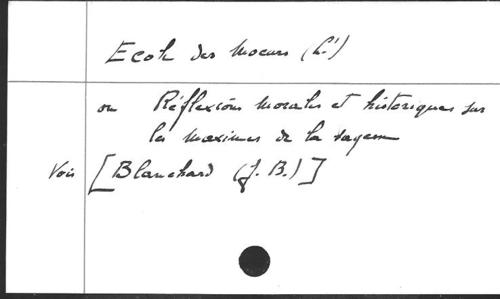 Ecole des Moeurs (L')
ou Réflexions morales et historiques sur
les maximes de la sagesse
Voir [Blanchard (J. B.)]